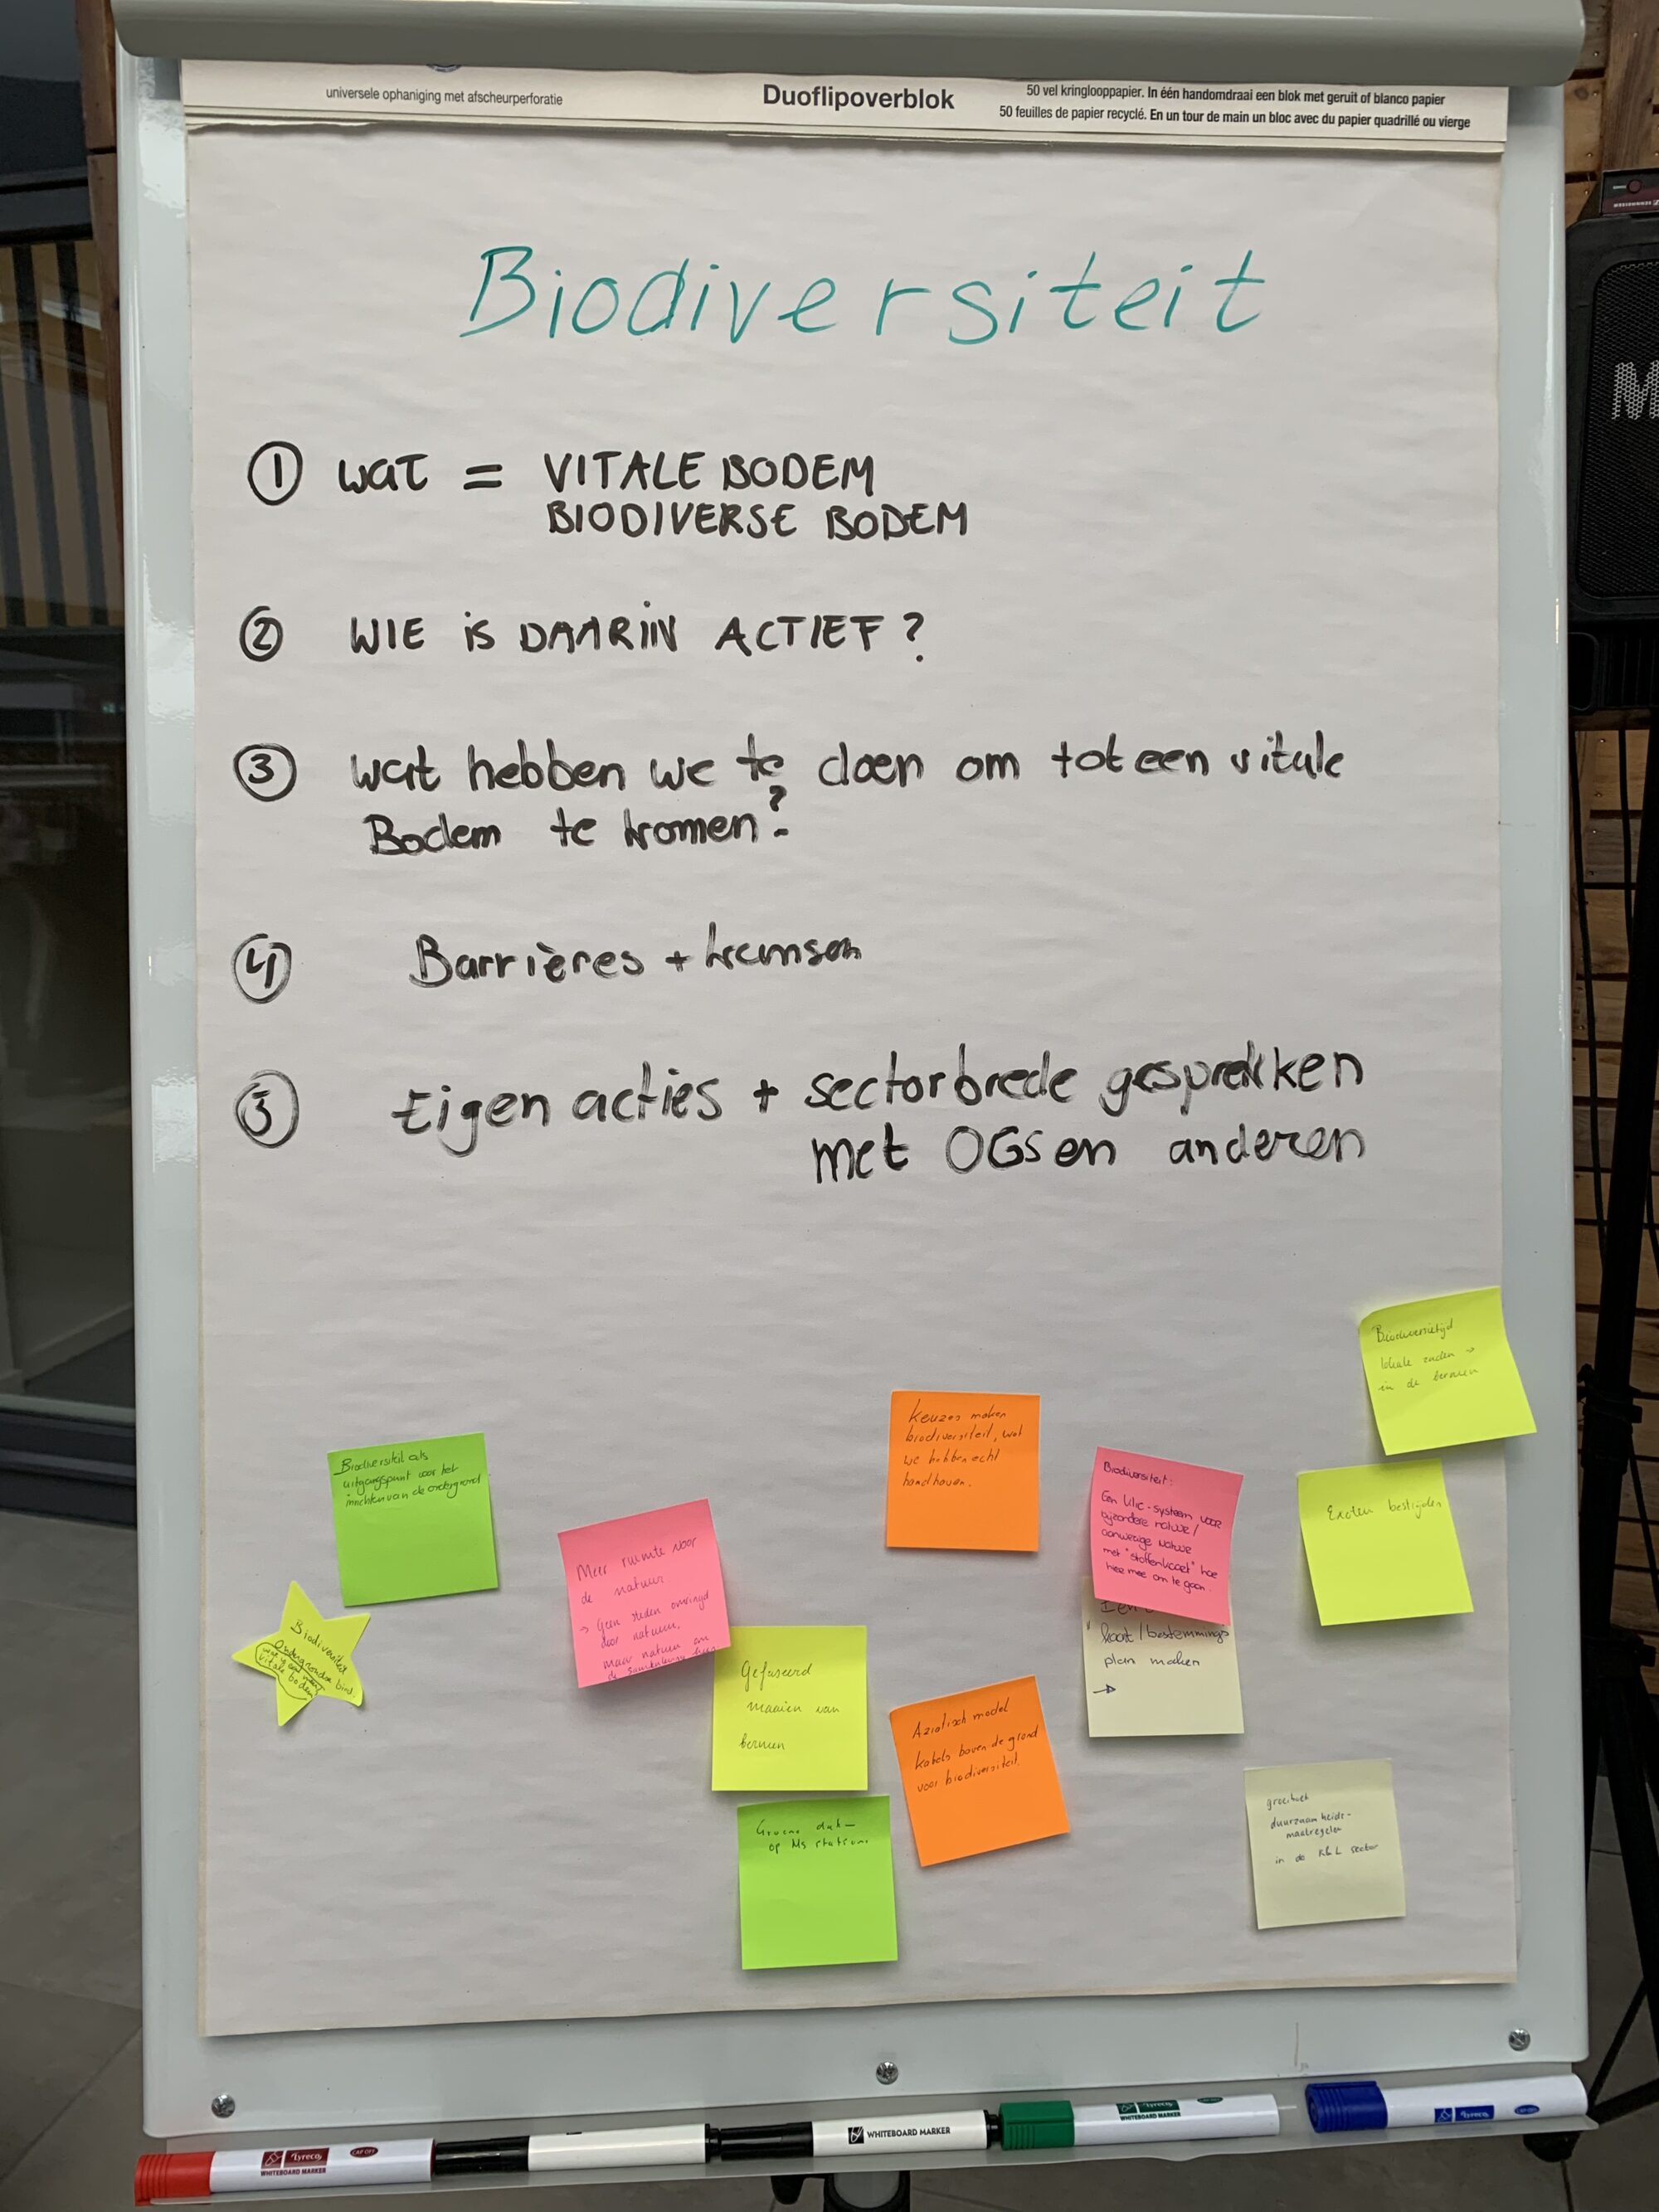 universele ophaniging met afscheurperforatie
Duoflipoverblok
50 vel kringlooppapier. In één handomdraai een blok met geruit of blanco papier
50 feuilles de papier recyclé. En un tour de main un bloc avec du papier quadrillé ou vierge
Biodiversiteit
① wat = VITALE BODEM
BIODIVERSE BODEM
② WIE iS DAARIN ACTIEF?
③ wat hebben we te doen om tot een vitale
Bodem te komen?
④ Barrières + kansen
⑤ Eigen acties + sectorbrede gesprekken
met OGs en anderen
Biodiversiteit
lokale zaden →
in de bermen
Keuzes maken
biodiversiteit, wat
we hebben echt
handhaven.
Biodiversiteit als
uitgangspunt voor het
inrichten van de ondergrond
Biodiversiteit:
Een klic-systeem voor
bijzondere natuur/
aanwezige natuur
met "stoffenkaart" hoe
hier mee om te gaan.
Exoten bestrijden
Meer ruimte voor
de natuur
→ Geen steden omringd
door natuur,
maar natuur om
de
Biodiversiteit
Ondergrondse biod.
vitale bodem
kaart/bestemmings
plan maken
→
Gefaseerd
maaien van
bermen
Aziatisch model
kabels boven de grond
voor biodiversiteit.
Groene dak
op Ms station
groeiboek
duurzaamheids-
maatregelen
in de K&L sector
Lyreco
WHITEBOARD MARKER
CAP OFF
WHITEBOARD MARKER
Lyreco
WHITEBOARD MARKER
Lyreco
M